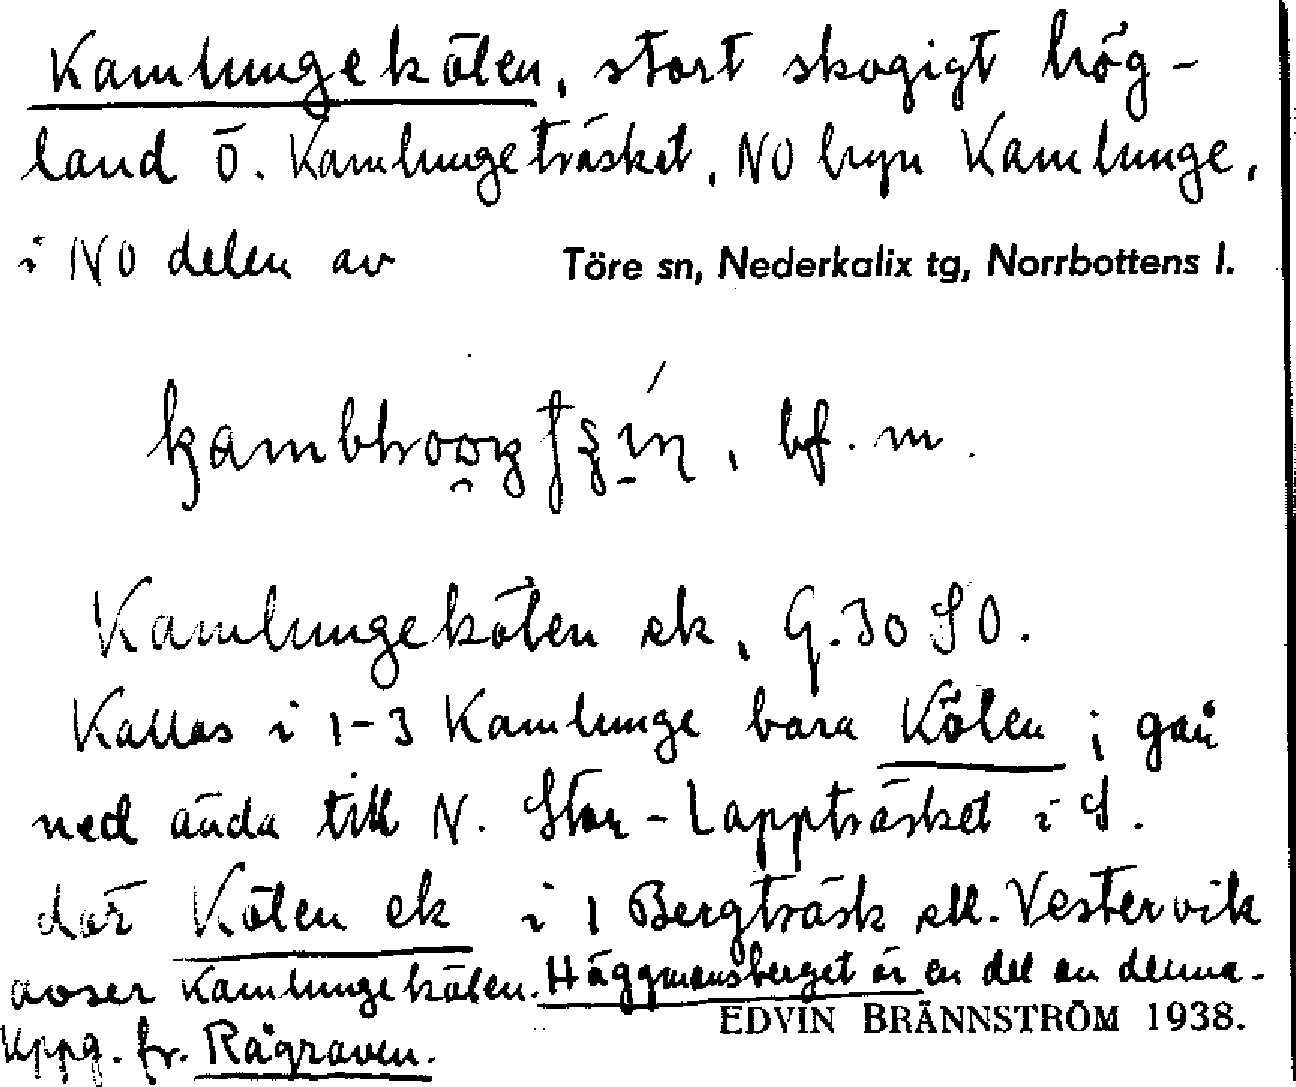 Kamlungekölen, stort skogigt hög-
land Ö. Kamlungeträsket, NO byn Kamlunge,
i NO delen av Töre sn, Nederkalix tg, Norrbottens l.
bf. m.
Kamlungekölen ek, G. 30 SO.
Kallas i 1-3 Kamlunge bara Kölen; går
ned ända till N. Stor-Lappträsket i S.
där Kölen ek i 1 Bergträsk ell. Vestervik
avser Kamlungekölen. Häggmansberget är en del av denna.
EDVIN BRÄNNSTRÖM 1938.
Uppg. fr. Rågraven.